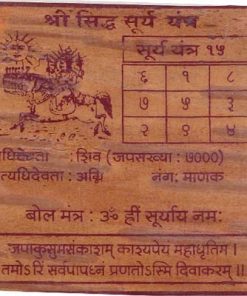 श्री सिद्ध सूर्य यंत्र
सूर्य यंत्र १५
६ १ ८
७ ५ ३
२ ९ ४
धिदेवता : शिव (जपसख्या : ७०००)
त्यधिदेवता: अग्नि नंग: माणक
बोल मंत्र : ॐ ह्रीं सूर्याय नमः
जपाकुसुमसंकाशम् काश्यपेयं महाधृतिम।
तमोऽरिं सर्वपापध्नं प्रणतोऽस्मि दिवाकरम्।।